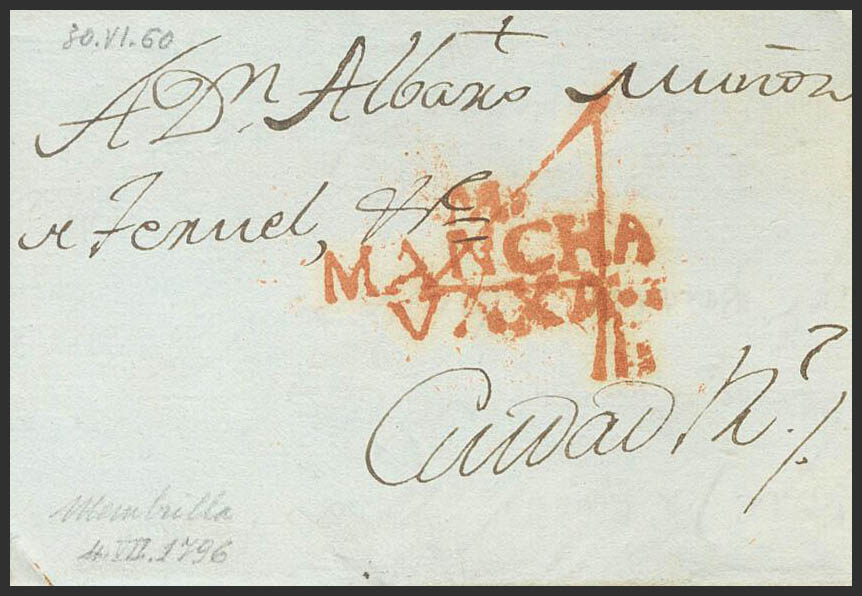 30.VI.60
A Dn. Albaro Muñoz
y Teruel, &c
MANCHA
VAXA
4
Ciudad Rl.
Membrilla
4.VII.1796